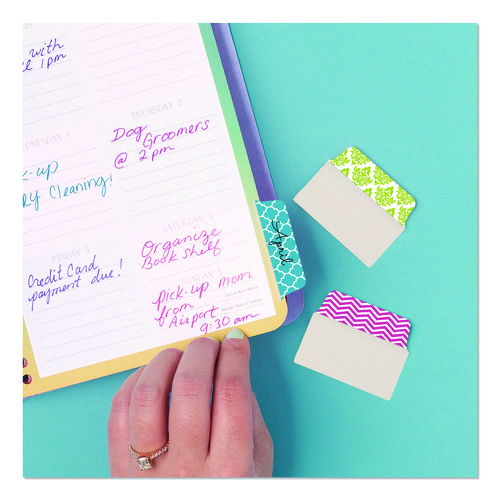 with
1pm
THURSDAY 2
Dog
Groomers
@ 2pm
WEDNESDAY 1
-up
Cleaning!
SATURDAY
Organize
Book Shelf
April
FRIDAY 3
Credit Card
payment due!
SUNDAY
pick-up mom
from
Airport
9:30 am